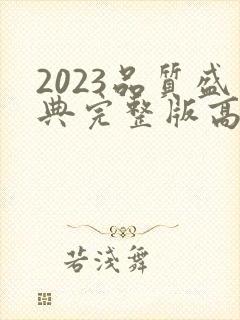 2023品質盛
典完整版高
若淺舞